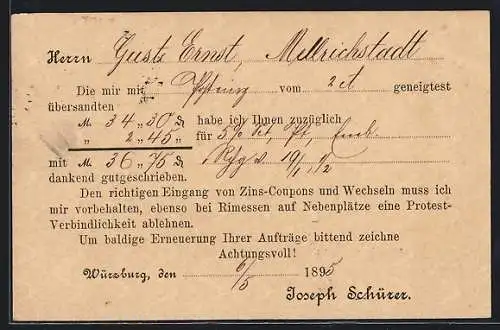 Herrn Gust. Ernst, Mellrichstadt
Die mir mit vom 2 ct geneigtest
übersandten
M. 34 „ 30 ₰ habe ich Ihnen zuzüglich
„ 2 „ 45 „ für 5%
mit M. 36 „ 75 ₰ 19/1 1/2
dankend gutgeschrieben.
Den richtigen Eingang von Zins-Coupons und Wechseln muss ich
mir vorbehalten, ebenso bei Rimessen auf Nebenplätze eine Protest-
Verbindlichkeit ablehnen.
Um baldige Erneuerung Ihrer Aufträge bittend zeichne
Achtungsvoll!
Würzburg, den 6/5 1895
Joseph Schürer.